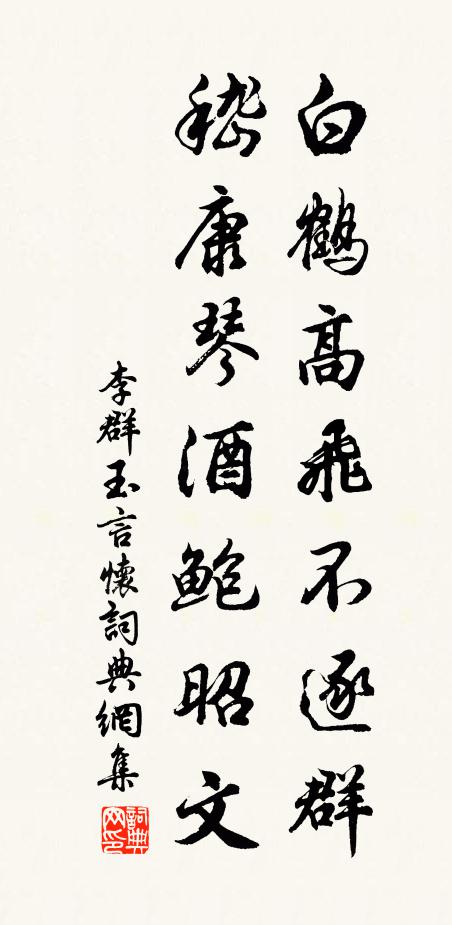 白鶴高飛不逐群
嵇康琴酒鮑昭文
李群玉言懷詞典網集
詞典网印